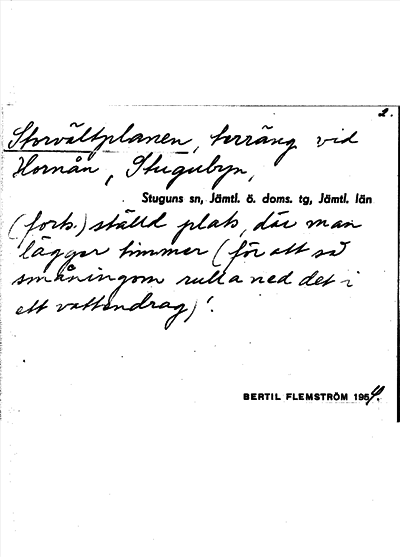 2.
Storvältplanen, terräng vid
Hornån, Stugubyn,
Stuguns sn, Jämtl. ö. doms. tg, Jämtl. län
(forts.) ställd plats, där man
lägger timmer (för att så
småningom rulla ned det i
ett vattendrag)'.
BERTIL FLEMSTRÖM 1954.